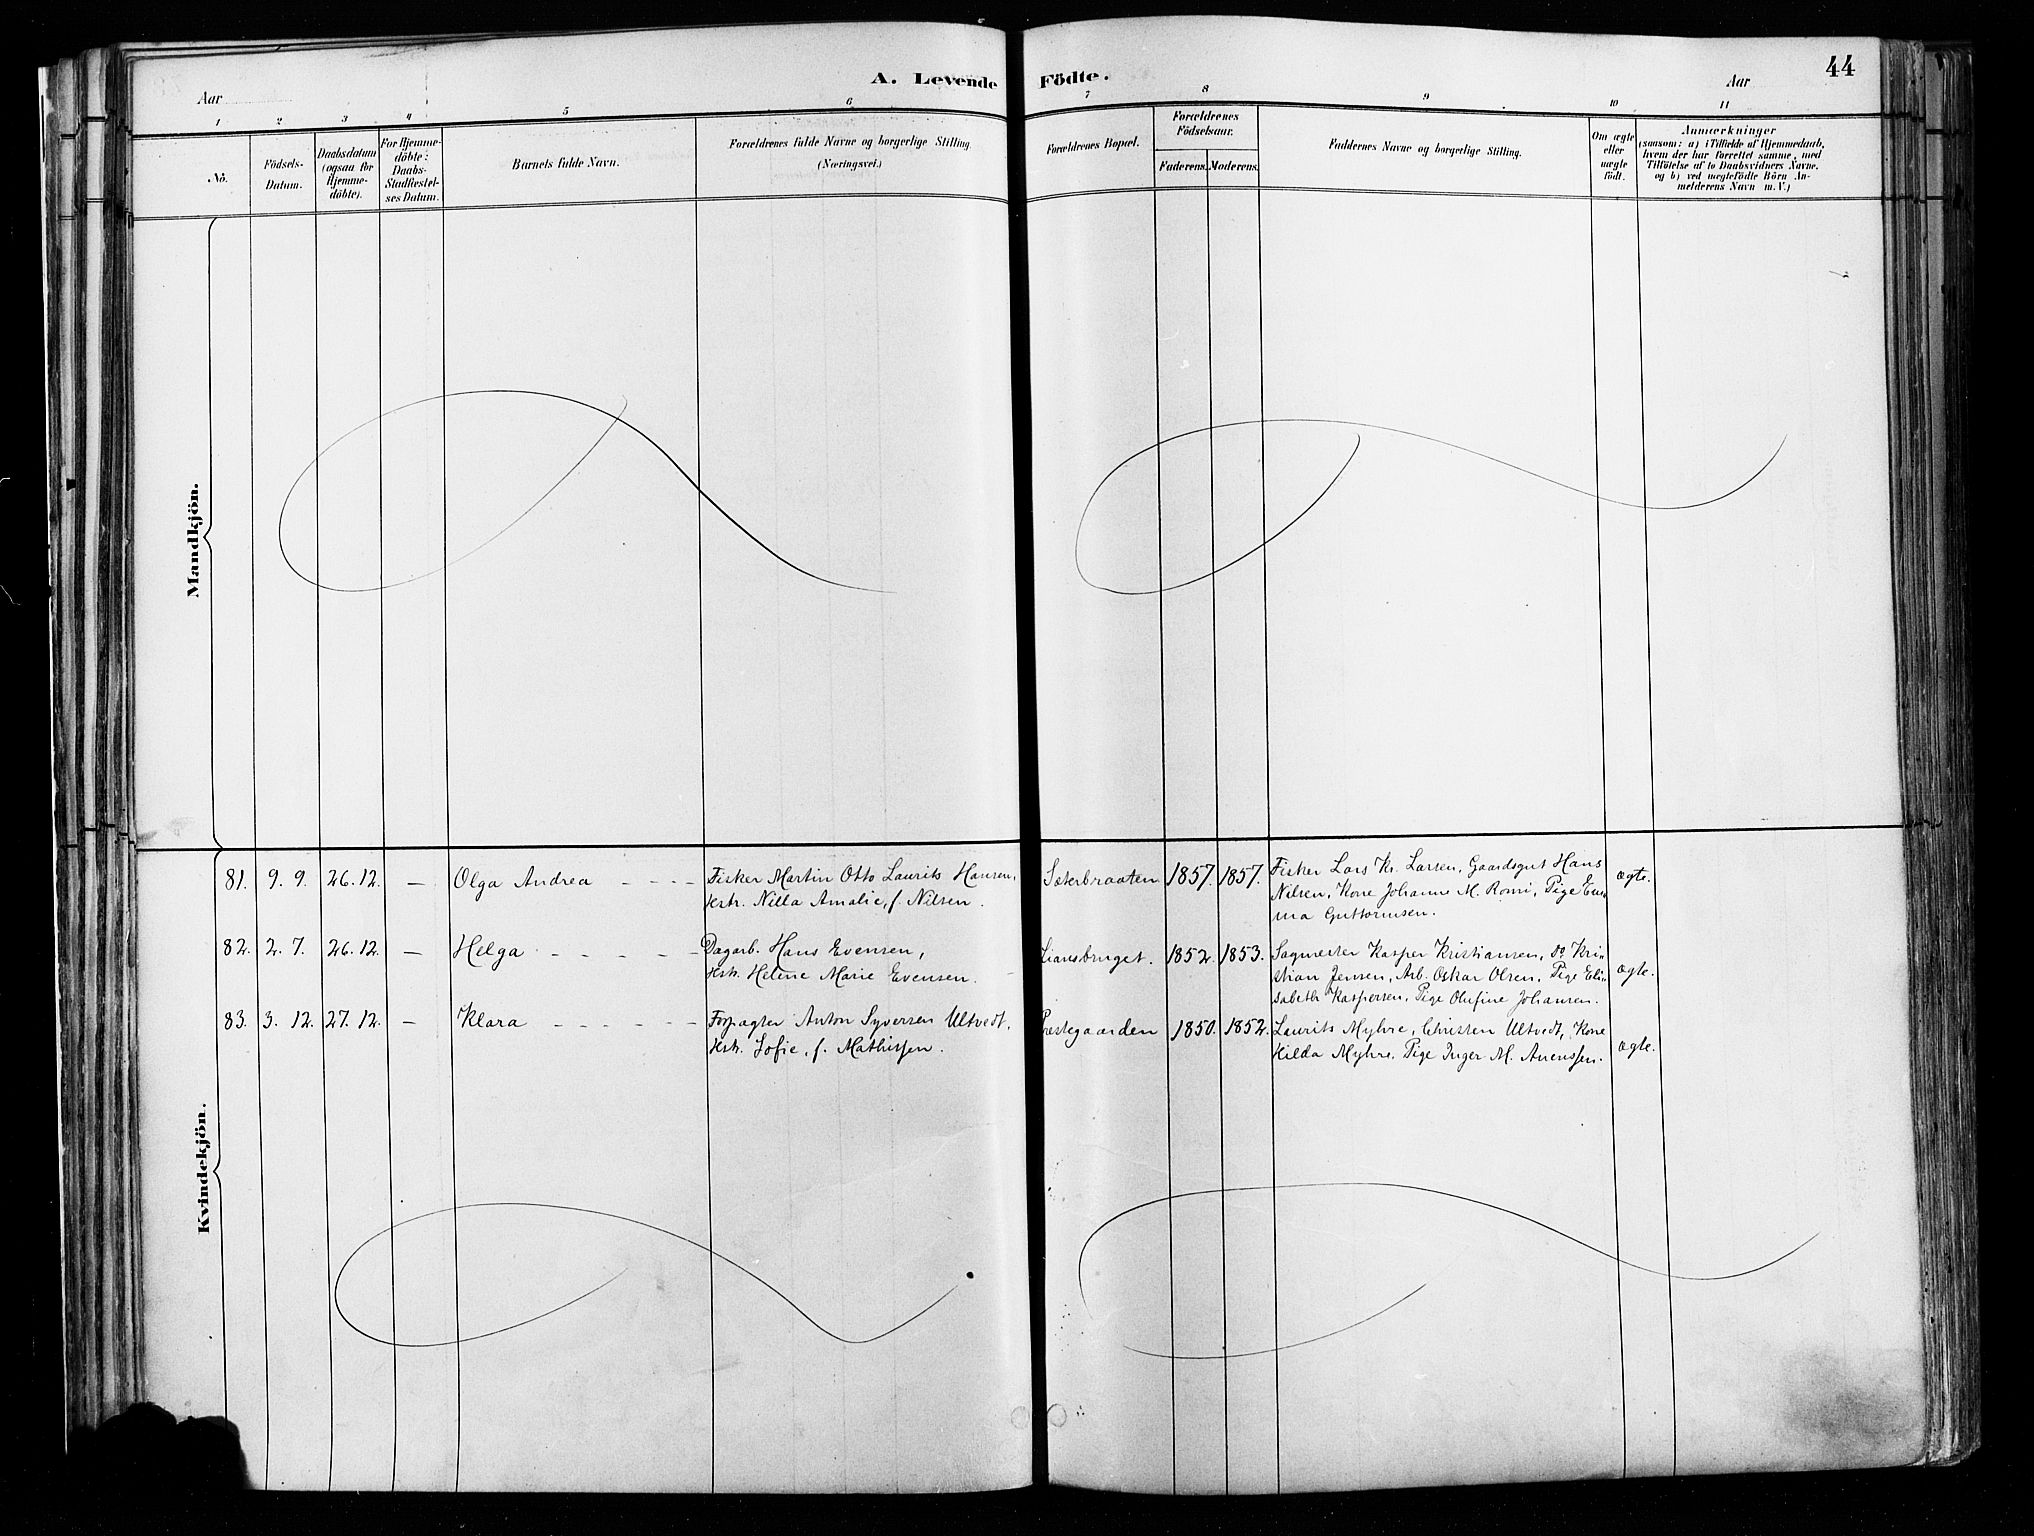 44
A. Levende Födte.
Aar
Aar
1 2 3 4 5 6 7 8 9 10 11
No.
Födsels-Datum.
Daabsdatum (ogsaa for Hjemme-döbte).
For Hjemme-döbte: Daabs-Stadfæstel-ses Datum.
Barnets fulde Navn.
Forældrenes fulde Navne og borgerlige Stilling (Næringsvei.)
Forældrenes Bopæl.
Forældrenes Födselsaar.
Faderens. Moderens.
Faddernes Navne og borgerlige Stilling.
Om ægte eller uægte födt.
Anmærkninger
(saasom: a) i Tilfælde af Hjemmedaab,
hvem der har forrettet samme, med
Tilföielse af to Daabsvidners Navne.
og b) ved uægtefödte Börn An-
melderens Navn m. V.)
Mandkjön.
Kvindekjön.
81. 9. 9. 26.12. — Olga Andrea - - - - Fisker Martin Otto Laurits Hansen, Sæterbraaten 1857. 1857. Fisker Lars Kr. Larsen, Gaardsgut Hans ægte.
Hstr. Nilla Amalie, f. Nilsen. Nilsen, Kone Johanne M. Romi, Pige Em-
ma Guttormsen.
82. 2. 7. 26.12. — Helga - - - - - Dagarb. Hans Evensen, Liansbruget. 1852. 1853. Sagmester Kasper Kristiansen, Do Kri-
Hstr. Helene Marie Evensen. stian Jensen, Arb. Oskar Olsen, Pige Eli- ægte.
sabeth Kaspersen, Pige Olufine Johansen.
83. 3. 12. 27.12. — Klara - - - - - - Forpagter Anton Syversen Ultvedt, Præstegaarden 1850. 1852. Laurits Myhre, Christen Ultvedt, Kone
Hstr. Sofie, f. Mathissen. Hilda Myhre, Pige Inger M. Arenssen. ægte.